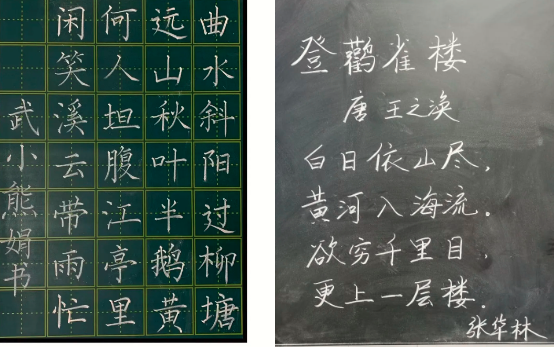 曲水斜阳过柳塘
远山秋叶半鹅黄
何人坦腹江亭里
闲笑溪云带雨忙
武小熊娟书
登鹳雀楼
唐 王之涣
白日依山尽，
黄河入海流。
欲穷千里目，
更上一层楼。
张华林